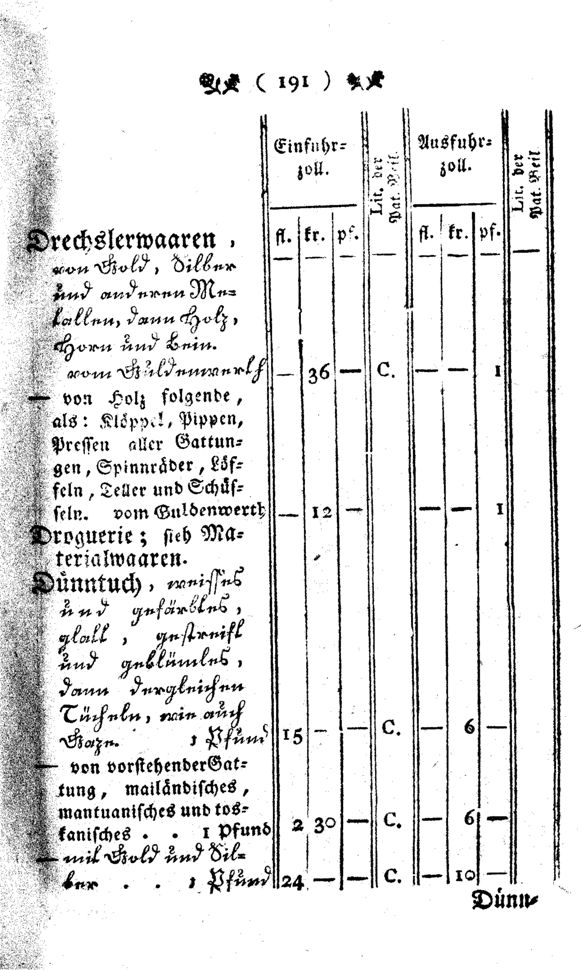 ( 191 )
Einfuhr=
zoll.
Lit. der
Pat. Beil.
Ausfuhr=
zoll.
Lit. der
Pat. Beil
fl. kr. pf. fl. kr. pf.
Drechslerwaaren,
von Gold, Silber
und anderen Me=
tallen, dann Holz,
Horn und Bein.
vom Guldenwerth — 36 — C. — — 1
— von Holz folgende,
als: Klöppel, Pippen,
Pressen aller Gattun=
gen, Spinnräder, Löf=
feln, Teller und Schüs=
seln. vom Guldenwerth — 12 — — — 1
Droguerie; sieh Ma=
terialwaaren.
Dünntuch, weisses
und gefärbtes,
glatt, gestreift
und geblümtes,
dann dergleichen
Tücheln, wie auch
Gaze. 1 Pfund 15 — — C. — 6 —
— von vorstehender Gat=
tung, mailändisches,
mantuanisches und tos=
kanisches . . 1 Pfund 2 30 — C. — 6 —
— mit Gold und Sil=
ber . . 1 Pfund 24 — — C. — 10 —
Dünn=